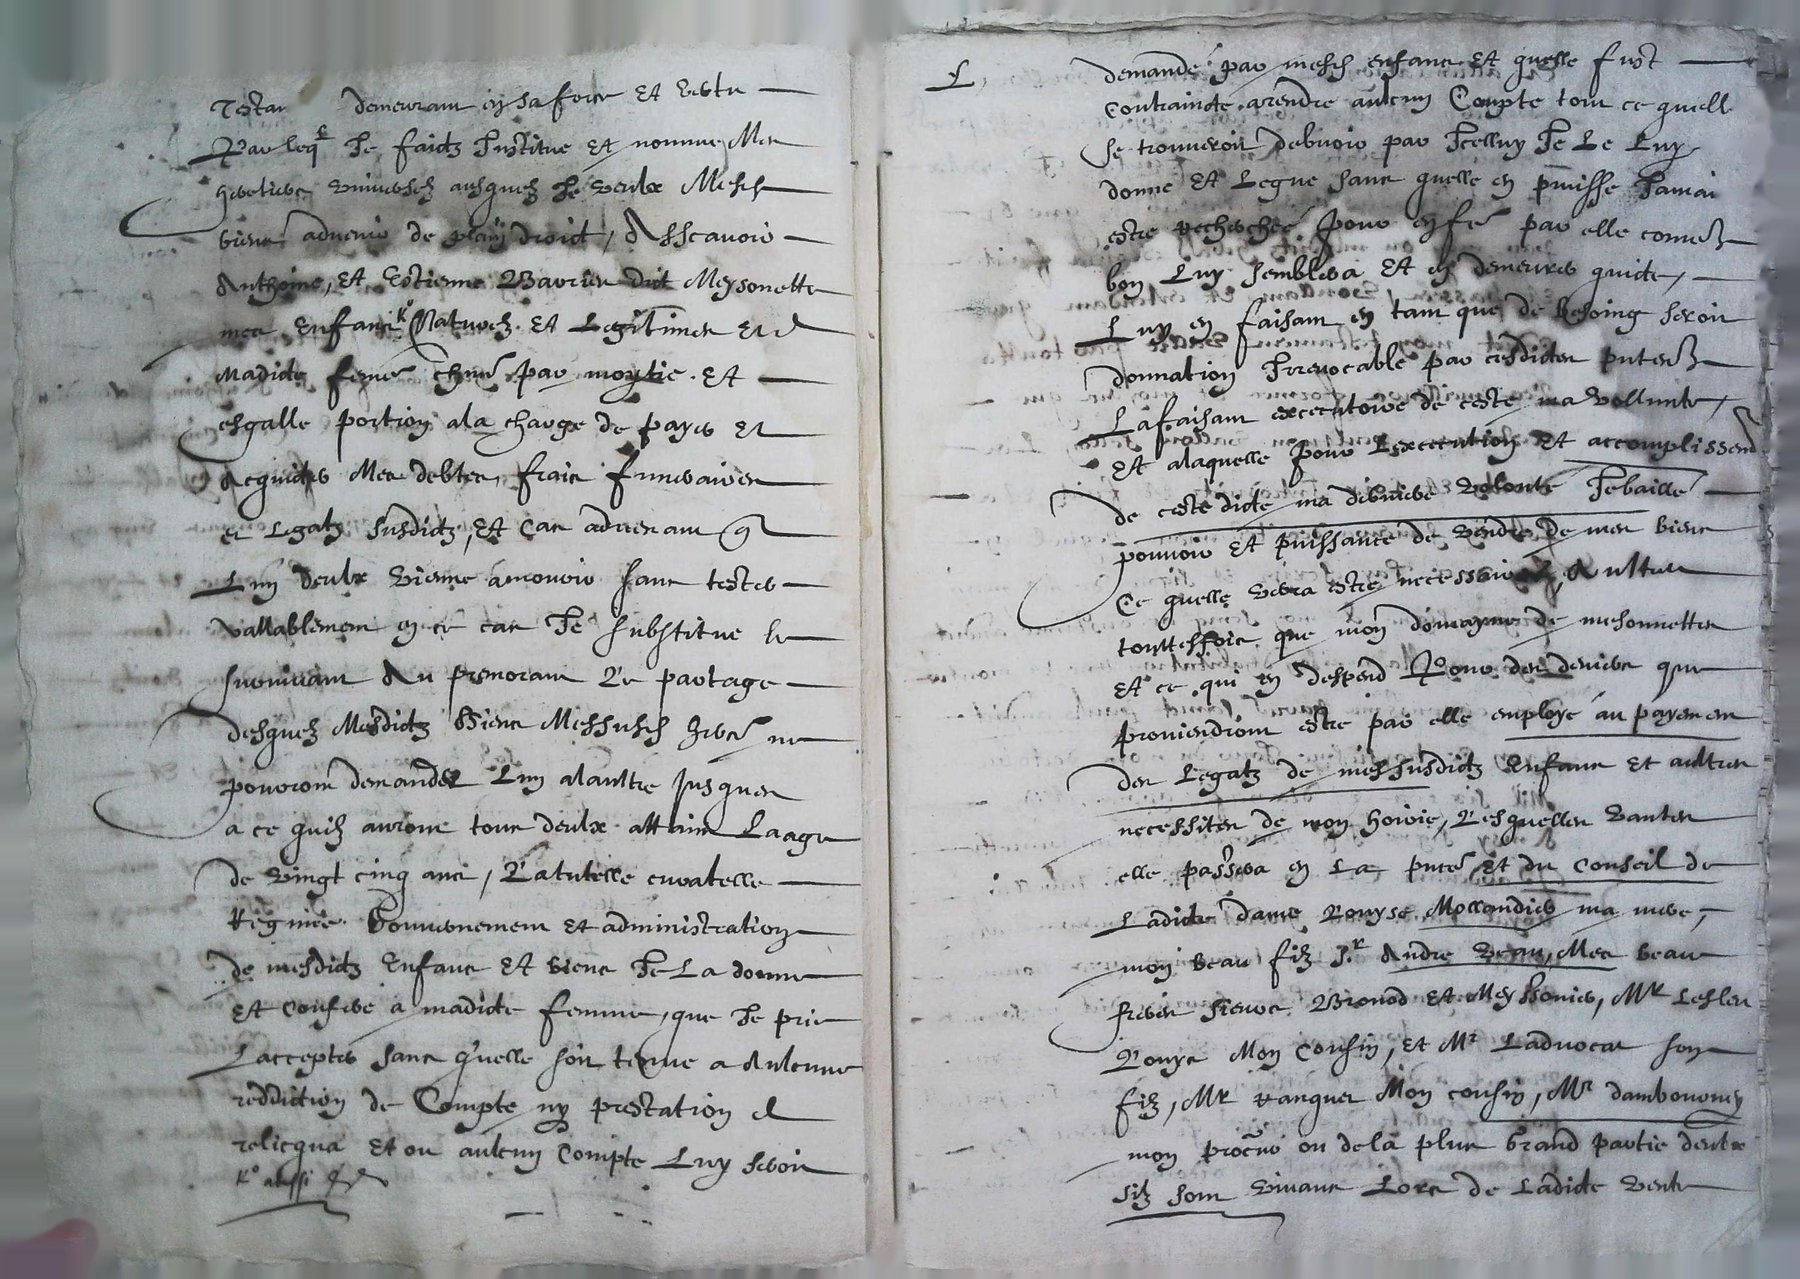 demeurant en sa force et vertu
Par leql Je faictz Institue et nomme Mes
heretiers universelz ausquelz Je veulx Mesds
biens advenir de plain droict, Asscavoir
Anthoine, et Estienne Barrier dict Meysonette
mes Enfans Naturelz et Legitimes et d
madicte feme chune par moytie et
esgalle portion a la charge de payer et
Acquicter Mes debtes, frais funeraires
et Legatz susdictz, et Cas advenant q
Lun deulx vienne a mourir sans tester
vallablement en ce cas Je substitue le
survivant Au premorant Le partage
desquelz Mesdictz Biens Messusds
pourront demander Lun a laultre Jusques
a ce quilz auront tous deulx attaint Laage
de vingt cinq ans, La tutelle curatelle
Regime Gouvernement et administration
de mesdictz Enfans et biens Je La donne
et Confere a madicte femme, que Je prie
Laccepter sans quelle soit tenue a Aulcune
reddiction de Compte ny prestation d
relicqua et ou aulcun Compte Luy seroit
L,
demande par mesds enfans et quelle fust
Contraincte a rendre aulcun Compte tout ce quell
se trouveroit debvoir par Icelluy Je Le Luy
donne et Legue sans quelle en puisse Jamai
estre recherchee pour en fe par elle come
bon Luy semblera et en demeurer quicte,
Luy en faisant en tant que de besoing seroit
donnation Irrevocable par cesdictes putes
La faisant executoire de ceste ma vollunte,
et a laquelle pour Lexecution et accomplissemt
de ceste dicte ma derniere volonte Je baille
pouvoir et puissance de vendre de mes biens
Ce quelle verra estre necessaire, Aultre
touttesfois que mon domayne de mesonnettes
et ce qui en despend Pour des deniers que
proviendront estre par elle employe au payement
des Legatz de messusdictz Enfans et aultres
necessites de mon hoirie, Lesquelles vantes
elle passera en La pute et du Conseil de
Ladicte dame Mollandier ma mere,
mon beau filz Sr Andre Mes beau
freres sieurs et Meyssonier, Mr Lesleu
Mon Cousin, et Mr Ladvocat son
filz, Mr Ranquet Mon cousin, Mr dambournay
mon procur ou de la plus Grand partie deulx
silz sont vivans Lors de Ladicte vente